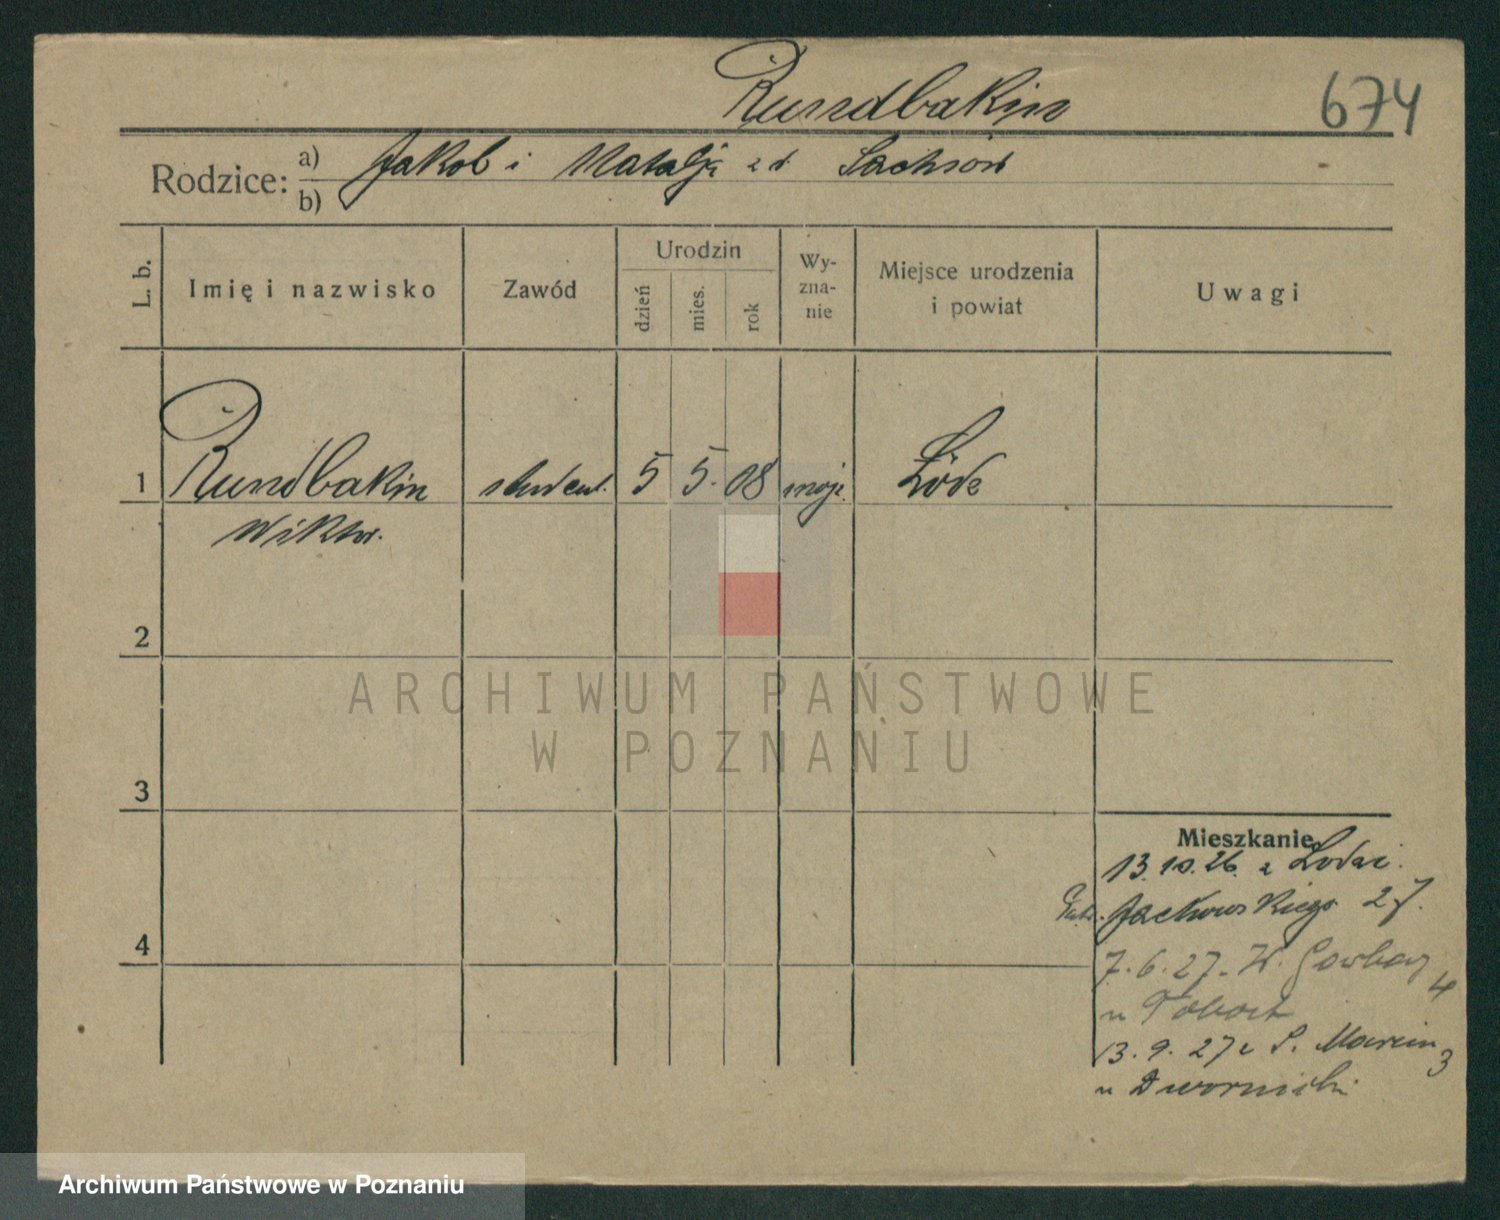 Rundbakin
674
Rodzice: a) Jakob i Natalji z d Sachsów
b)
L. b.
Imię i nazwisko
Zawód
Urodzin
dzień
mies.
rok
Wy-
zna-
nie
Miejsce urodzenia
i powiat
Uwagi
1 Rundbakin student. 5 5. 08 mojż. Łódź
Wiktor.
2
3
4
Mieszkanie
13.10.26. z Łodzi.
Jackowskiego 27.
7.6.27. W. Garbary 4
u
13.9.27 S. Marcin 3
u Dwornicki
ARCHIWUM PAŃSTWOWE
W POZNANIU
Archiwum Państwowe w Poznaniu